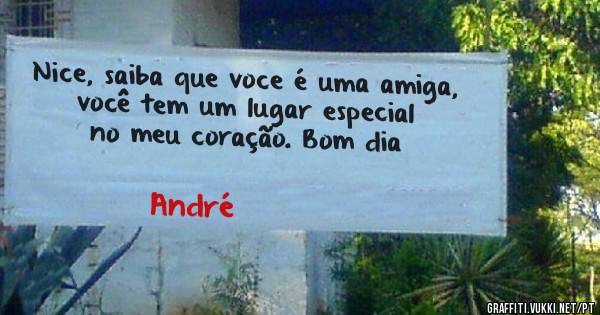 Nice, saiba que voce é uma amiga,
você tem um lugar especial
no meu coração. Bom dia
André
GRAFFITI.VUKKI.NET/PT